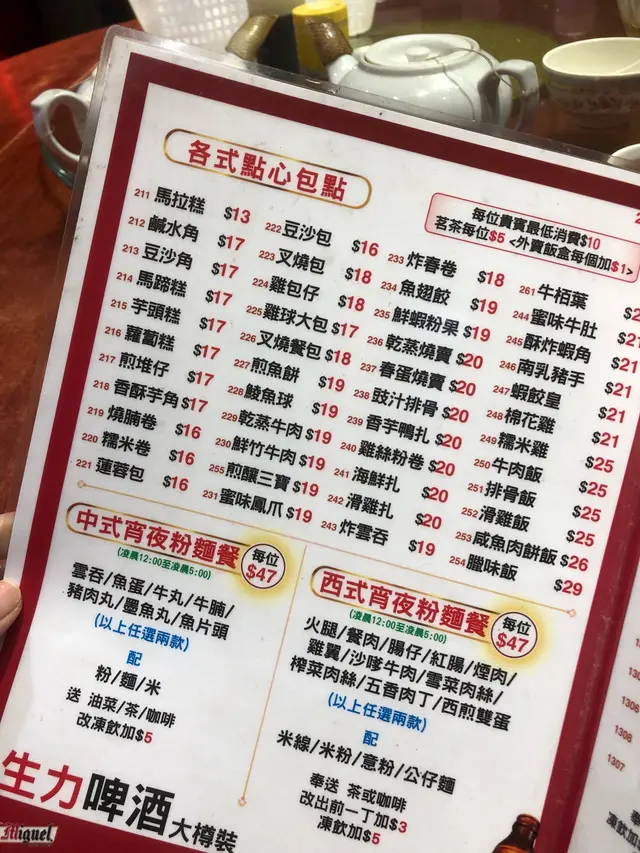 各式點心包點
每位貴賓最低消費$10
茗茶每位$5 <外賣飯盒每個加$1>
211 馬拉糕 $13
212 鹹水角 $17
213 豆沙角 $17
214 馬蹄糕 $17
215 芋頭糕 $17
216 蘿蔔糕 $17
217 煎堆仔 $17
218 香酥芋角 $17
219 燒腩卷 $16
220 糯米卷 $16
221 蓮蓉包 $16
222 豆沙包 $16
223 叉燒包 $18
224 雞包仔 $18
225 雞球大包 $17
226 叉燒餐包 $18
227 煎魚餅 $19
228 鯪魚球 $19
229 乾蒸牛肉 $19
230 鮮竹牛肉 $19
255 煎釀三寶 $19
231 蜜味鳳爪 $19
233 炸春卷 $18
234 魚翅餃 $19
235 鮮蝦粉果 $19
236 乾蒸燒賣 $20
237 春蛋燒賣 $20
238 豉汁排骨 $20
239 香芋鴨扎 $20
240 雞絲粉卷 $20
241 海鮮扎 $20
242 滑雞扎 $20
243 炸雲吞 $19
261 牛栢葉
244 蜜味牛肚 $21
245 酥炸蝦角 $21
246 南乳豬手 $21
247 蝦餃皇 $21
248 棉花雞 $21
249 糯米雞 $25
250 牛肉飯 $25
251 排骨飯 $25
252 滑雞飯 $25
253 咸魚肉餅飯 $26
254 臘味飯 $29
中式宵夜粉麵餐 每位 $47
(凌晨12:00至凌晨5:00)
雲吞/魚蛋/牛丸/牛腩/
豬肉丸/墨魚丸/魚片頭
(以上任選兩款)
配
粉/麵/米
送 油菜/茶/咖啡
改凍飲加$5
西式宵夜粉麵餐 每位 $47
(凌晨12:00至凌晨5:00)
火腿/餐肉/腸仔/紅腸/煙肉/
雞翼/沙嗲牛肉/雪菜肉絲/
榨菜肉絲/五香肉丁/西煎雙蛋
(以上任選兩款)
配
米線/米粉/意粉/公仔麵
奉送 茶或咖啡
改出前一丁加$3
凍飲加$5
生力啤酒 大樽裝
Miguel
1307